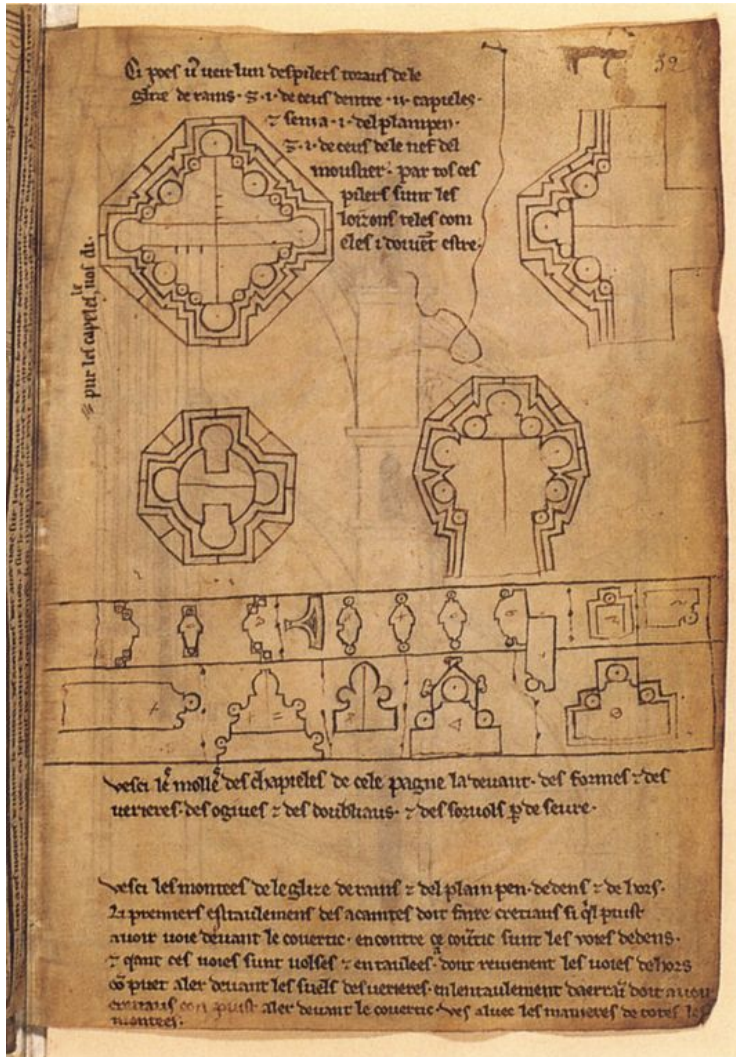 Ci poes u᷒ ueir lun des pilers toraus de le
glize de rains · ⁊ · i · de ceus dentre · ii · capieles ·
⁊ sen i a · i · del plain pen ·
⁊ · i · de ceus de le nef del
moustier · par tos ces
pilers sunt les
loizons teles com
eles i doiuēt estre ·
32
pur les capetel
vesci le molle des chapieles de cele pagne la deuant · des formes ⁊ des
uerieres · des ogiues ⁊ des doubliaus · ⁊ des soruols ꝑ de seure ·
vesci les montees de le glize de rains ⁊ del plain pen · dedens ⁊ de hors ·
Li premiers estaulemens des acaintes doit faire cretiaus si qͥl puist
auoir uoie deuant le couertic · encontre ce couͬtic sunt les uoies dedens ·
⁊ qant ces uoies sunt uolses ⁊ entaulees · dont reuienent les uoies dehors
cō puet aler deuant les suels des uerieres · en lentaulement daerraī doit auoir
cretiaus con puist aler deuant le couertic · ves aluec les manieres de totes les
montees ·